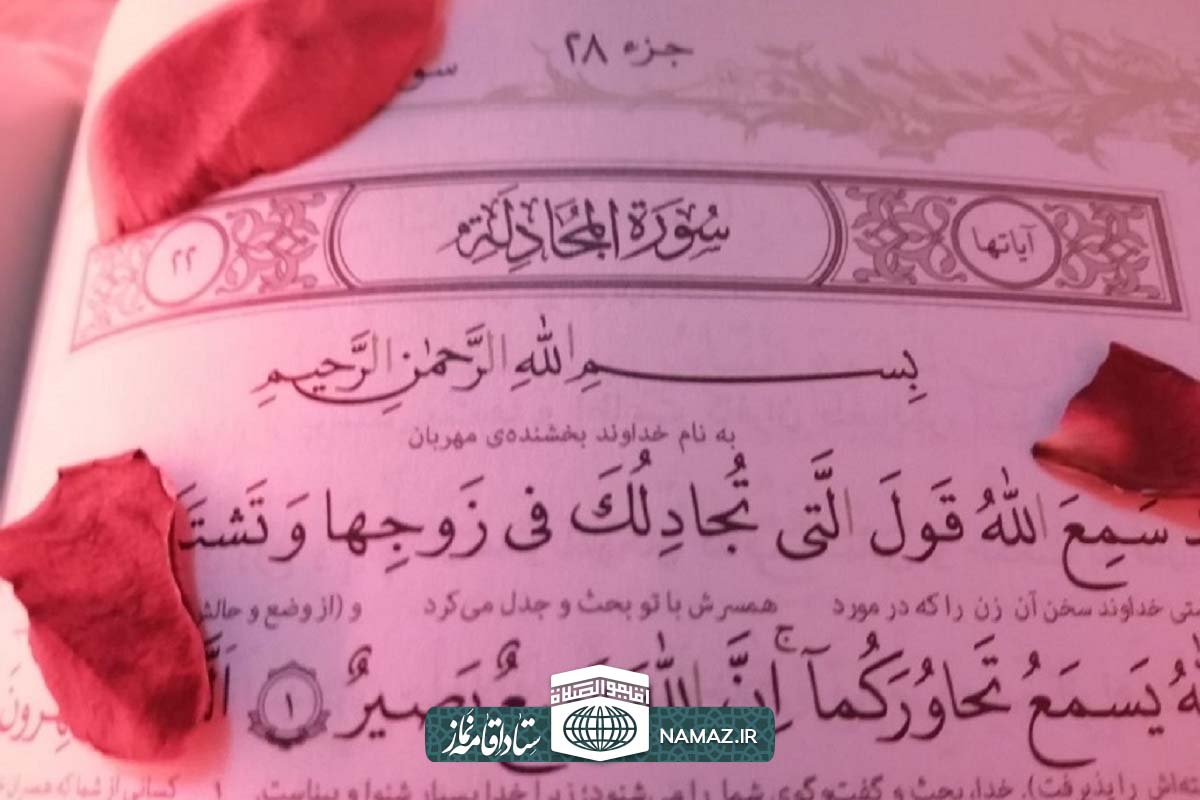 جزء ۲۸
سو
آیاتها
سُورَةُ الْمُجَادِلَةِ
۲۲
بِسْمِ اللهِ الرَّحْمٰنِ الرَّحِیمِ
به نام خداوند بخشنده‌ی مهربان
سَمِعَ اللهُ قَولَ الَّتی تُجادِلُكَ فی زَوجِها وَ تَشتَ
خداوند سخن آن زن را که در مورد همسرش با تو بحث و جدل می‌کرد و (از وضع و حالش
یَسمَعُ تَحاوُرَكُمآ اِنَّ اللهَ بَصیرٌ ۱
را پذیرفت). خدا، بحث و گفت‌وگوی شما را می‌شنود؛ زیرا خدا بسیار شنوا و بیناست. ۱ کسانی از شما که
اقیموا الصلاة
ستاد اقامه نماز
NAMAZ.IR